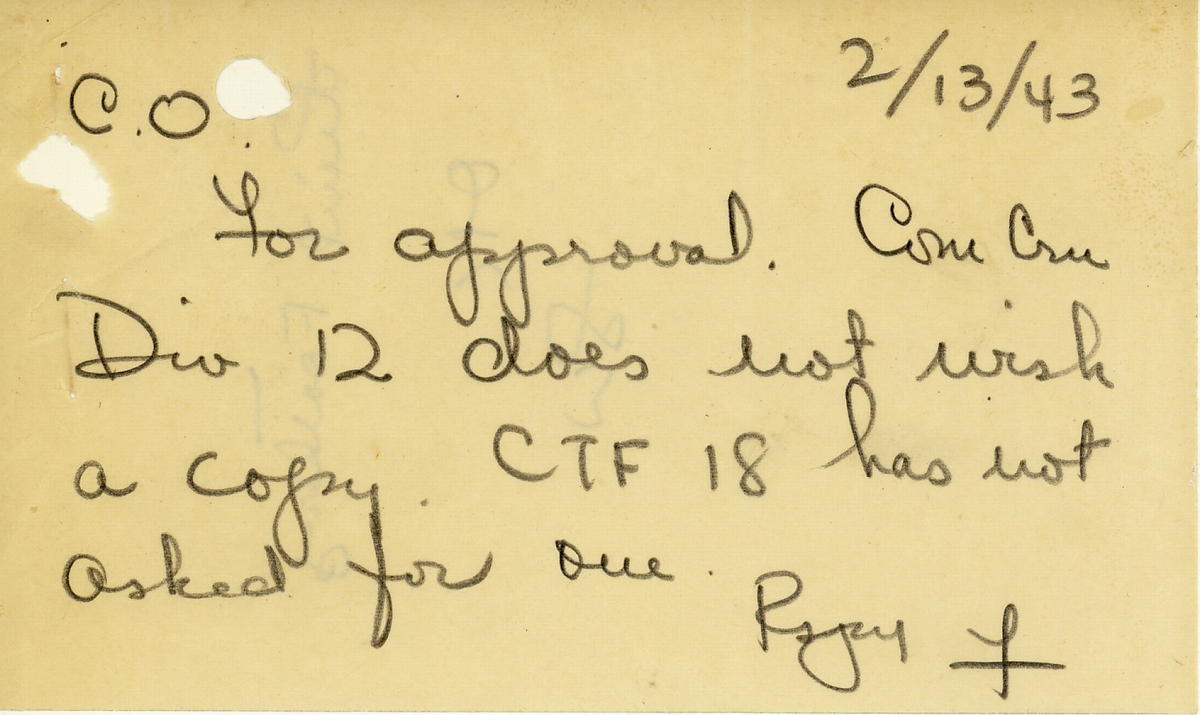 C.O. 2/13/43
For approval. Com Cru
Div 12 does not wish
a copy. CTF 18 has not
asked for one.